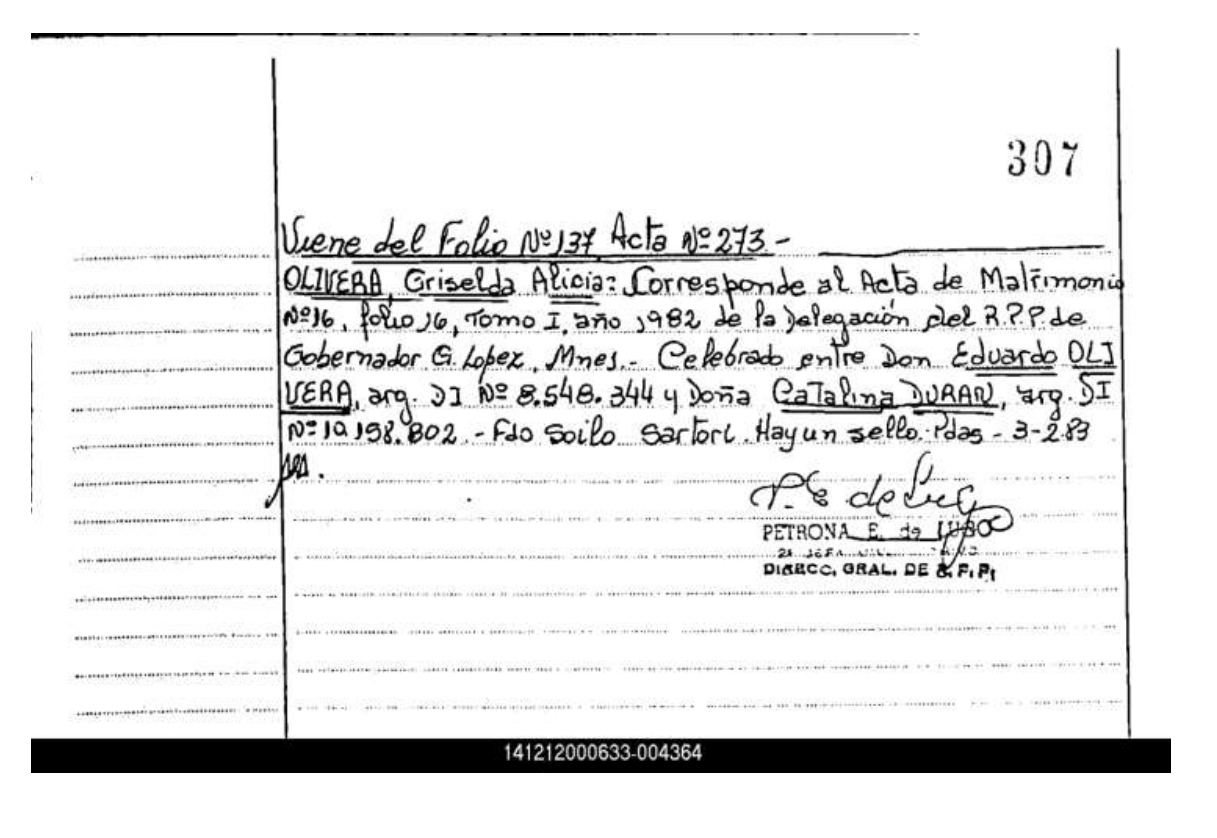 307
Viene del Folio Nº 137 Acta Nº 273 -
OLIVERA, Griselda Alicia: Corresponde al Acta de Matrimonio
Nº 16, folio 16, Tomo I, año 1982 de la Delegación del R.P.P. de
Gobernador G. Lopez, Mnes.- Celebrado entre Don Eduardo OLI
VERA, arg. DI Nº 8.548.344 y Doña Catalina DURAN, arg. DI
Nº 10.158.802 - Fdo Soilo Sartori. Hay un sello. Pdas - 3-2.83
PETRONA E. de
DIRECC. GRAL. DE R. P. P.
141212000633-004364